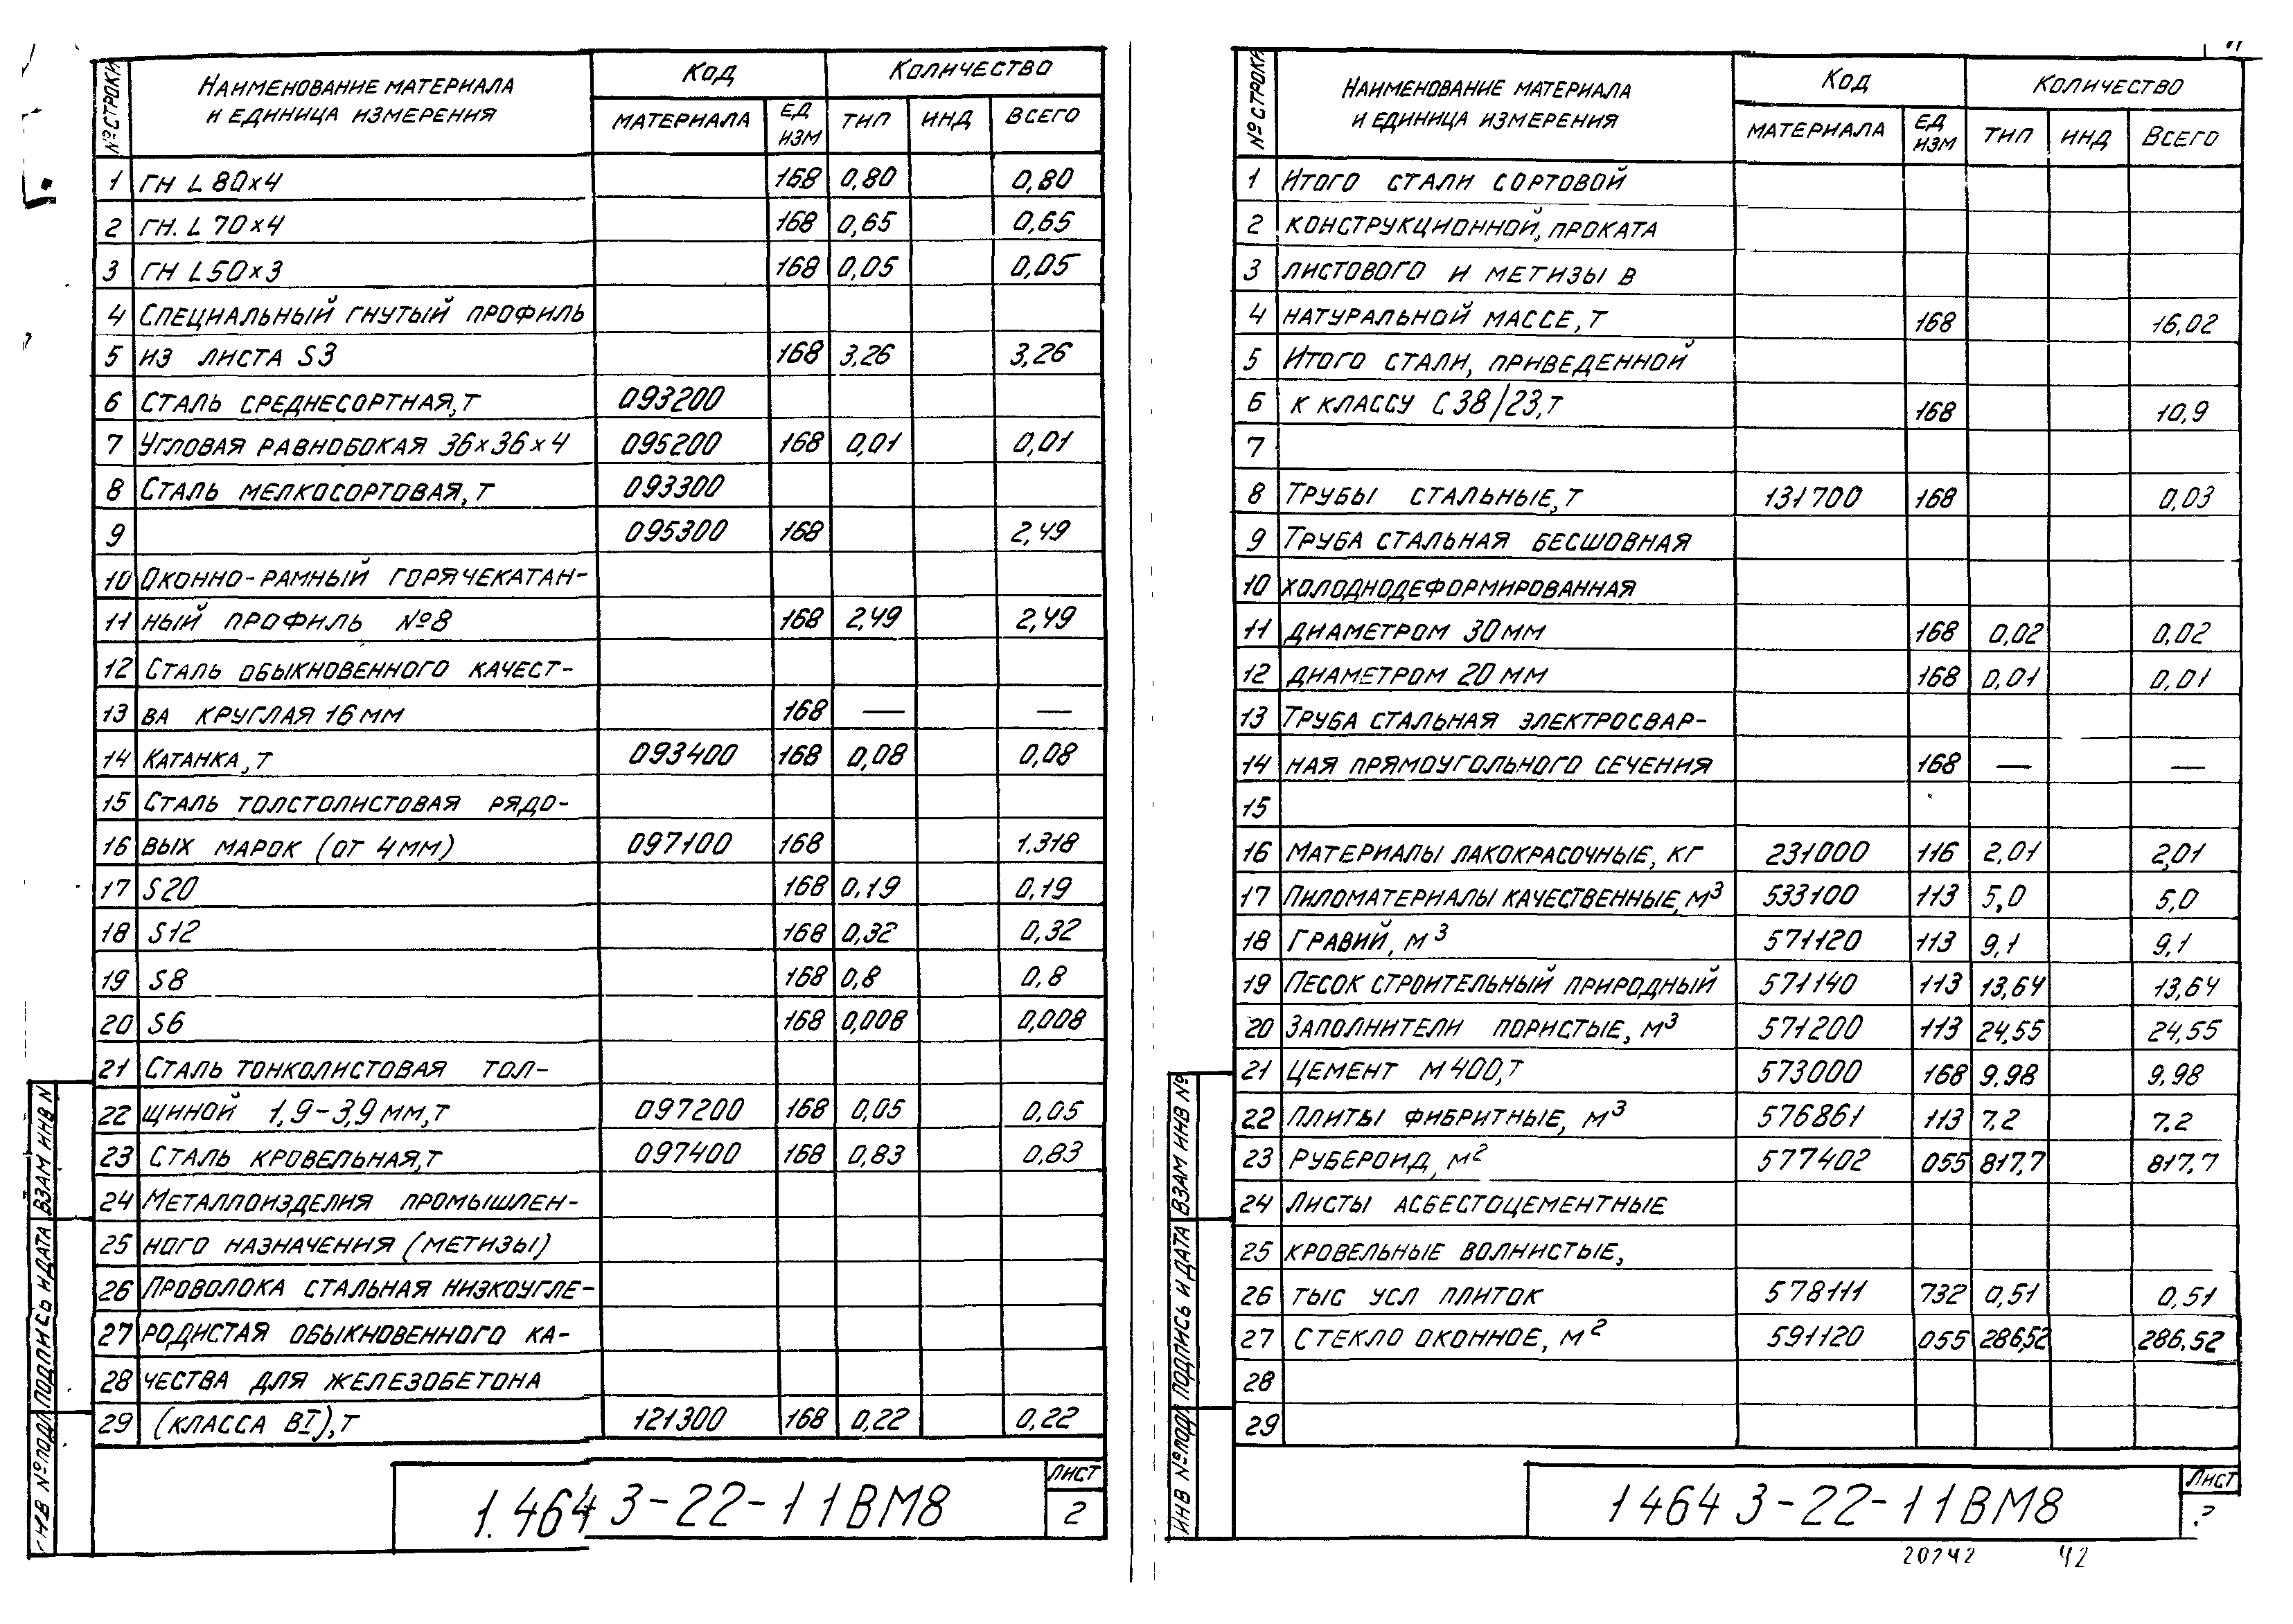 № СТРОКИ | НАИМЕНОВАНИЕ МАТЕРИАЛА И ЕДИНИЦА ИЗМЕРЕНИЯ | КОД | КОЛИЧЕСТВО
МАТЕРИАЛА | ЕД ИЗМ | ТИП | ИНД | ВСЕГО
1 ГН L 80×4 168 0,80 0,80
2 ГН. L 70×4 168 0,65 0,65
3 ГН L50×3 168 0,05 0,05
4 СПЕЦИАЛЬНЫЙ ГНУТЫЙ ПРОФИЛЬ
5 ИЗ ЛИСТА S3 168 3,26 3,26
6 СТАЛЬ СРЕДНЕСОРТНАЯ,Т 093200
7 УГЛОВАЯ РАВНОБОКАЯ 36×36×4 095200 168 0,01 0,01
8 СТАЛЬ МЕЛКОСОРТОВАЯ,Т 093300
9 095300 168 2,49
10 ОКОННО-РАМНЫЙ ГОРЯЧЕКАТАН-
11 НЫЙ ПРОФИЛЬ №8 168 2,49 2,49
12 СТАЛЬ ОБЫКНОВЕННОГО КАЧЕСТ-
13 ВА КРУГЛАЯ 16 ММ 168 — —
14 КАТАНКА, Т 093400 168 0,08 0,08
15 СТАЛЬ ТОЛСТОЛИСТОВАЯ РЯДО-
16 ВЫХ МАРОК (ОТ 4 ММ) 097100 168 1.318
17 S20 168 0,19 0,19
18 S12 168 0,32 0,32
19 S8 168 0,8 0,8
20 S6 168 0,008 0,008
21 СТАЛЬ ТОНКОЛИСТОВАЯ ТОЛ-
22 ЩИНОЙ 1,9-3,9 ММ,Т 097200 168 0,05 0,05
23 СТАЛЬ КРОВЕЛЬНАЯ,Т 097400 168 0,83 0,83
24 МЕТАЛЛОИЗДЕЛИЯ ПРОМЫШЛЕН-
25 НОГО НАЗНАЧЕНИЯ (МЕТИЗЫ)
26 ПРОВОЛОКА СТАЛЬНАЯ НИЗКОУГЛЕ-
27 РОДИСТАЯ ОБЫКНОВЕННОГО КА-
28 ЧЕСТВА ДЛЯ ЖЕЛЕЗОБЕТОНА
29 (КЛАССА ВI),Т 121300 168 0,22 0,22
ИНВ № ПОДЛ ПОДПИСЬ И ДАТА ВЗАМ ИНВ N
1.464 3-22-11ВМ8
ЛИСТ
2
№ СТРОКИ | НАИМЕНОВАНИЕ МАТЕРИАЛА И ЕДИНИЦА ИЗМЕРЕНИЯ | КОД | КОЛИЧЕСТВО
МАТЕРИАЛА | ЕД ИЗМ | ТИП | ИНД | ВСЕГО
1 ИТОГО СТАЛИ СОРТОВОЙ
2 КОНСТРУКЦИОННОЙ, ПРОКАТА
3 ЛИСТОВОГО И МЕТИЗЫ В
4 НАТУРАЛЬНОЙ МАССЕ, Т 168 16,02
5 ИТОГО СТАЛИ, ПРИВЕДЕННОЙ
6 К КЛАССУ С 38/23,Т 168 10,9
7
8 ТРУБЫ СТАЛЬНЫЕ,Т 131700 168 0,03
9 ТРУБА СТАЛЬНАЯ БЕСШОВНАЯ
10 ХОЛОДНОДЕФОРМИРОВАННАЯ
11 ДИАМЕТРОМ 30ММ 168 0,02 0,02
12 ДИАМЕТРОМ 20 ММ 168 0,01 0,01
13 ТРУБА СТАЛЬНАЯ ЭЛЕКТРОСВАР-
14 НАЯ ПРЯМОУГОЛЬНОГО СЕЧЕНИЯ 168 — —
15
16 МАТЕРИАЛЫ ЛАКОКРАСОЧНЫЕ, КГ 231000 116 2,01 2,01
17 ПИЛОМАТЕРИАЛЫ КАЧЕСТВЕННЫЕ, М³ 533100 113 5,0 5,0
18 ГРАВИЙ, М³ 571120 113 9,1 9,1
19 ПЕСОК СТРОИТЕЛЬНЫЙ ПРИРОДНЫЙ 571140 113 13,64 13,64
20 ЗАПОЛНИТЕЛИ ПОРИСТЫЕ, М³ 571200 113 24,55 24,55
21 ЦЕМЕНТ М400,Т 573000 168 9.98 9.98
22 ПЛИТЫ ФИБРИТНЫЕ, М³ 576861 113 7.2 7.2
23 РУБЕРОИД, М² 577402 055 817,7 817.7
24 ЛИСТЫ АСБЕСТОЦЕМЕНТНЫЕ
25 КРОВЕЛЬНЫЕ ВОЛНИСТЫЕ,
26 ТЫС УСЛ ПЛИТОК 578111 732 0,51 0,51
27 СТЕКЛО ОКОННОЕ, М² 591120 055 286,52 286,52
28
29
ИНВ № ПОДЛ ПОДПИСЬ И ДАТА ВЗАМ ИНВ №
1464 3-22-11ВМ8
ЛИСТ
20242 42